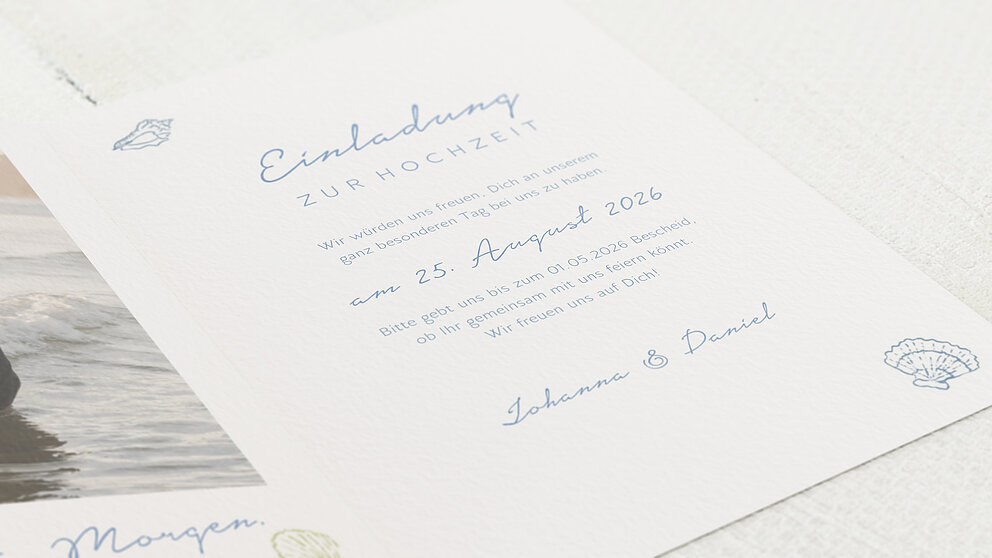 Einladung
ZUR HOCHZEIT
Wir würden uns freuen, Dich an unserem
ganz besonderen Tag bei uns zu haben.
am 25. August 2026
Bitte gebt uns bis zum 01.05.2026 Bescheid,
ob Ihr gemeinsam mit uns feiern könnt.
Wir freuen uns auf Dich!
Johanna & Daniel
Morgen.